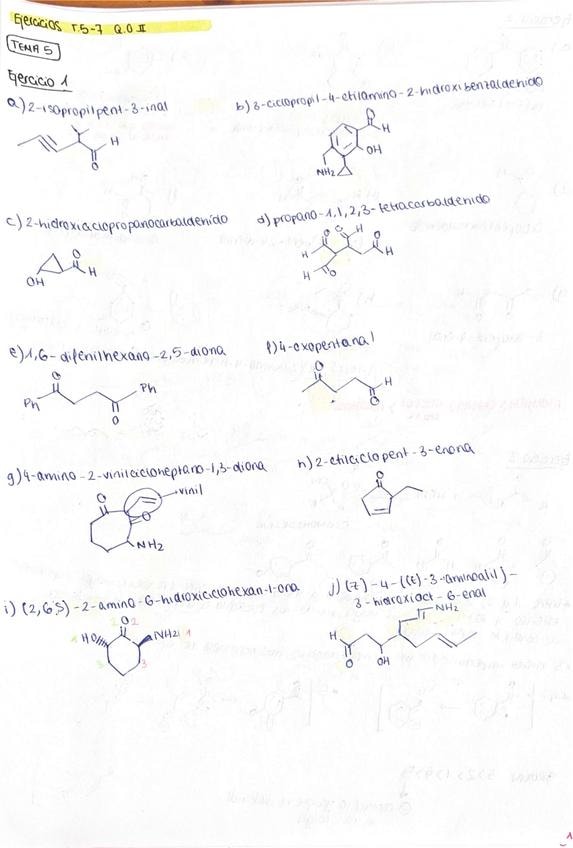 Ejercicios T.5-7 Q.O II
TEMA 5
Ejercicio 1
a) 2-isopropilpent-3-inal
b) 3-ciclopropil-4-etilamino-2-hidroxibenzaldehido
H
O
O
H
OH
NH2
c) 2-hidroxiciclopropanocarbaldehído
d) propano-1,1,2,3-tetracarbaldehido
O
H
OH
O
O
H
O
H
H
H
O
e) 1,6-difenilhexano-2,5-diona
f) 4-oxopentanal
O
Ph
Ph
O
O
H
O
g) 4-amino-2-vinilcicloheptano-1,3-diona
h) 2-etilciclopent-3-enona
O
vinil
O
NH2
O
i) (2,6S)-2-amino-6-hidroxiciclohexan-1-ona
j) (Z)-4-((E)-3-aminoalil)-
3-hidroxioct-6-enal
HO
O
2
NH2
1
3
3
NH2
H
O
OH
1